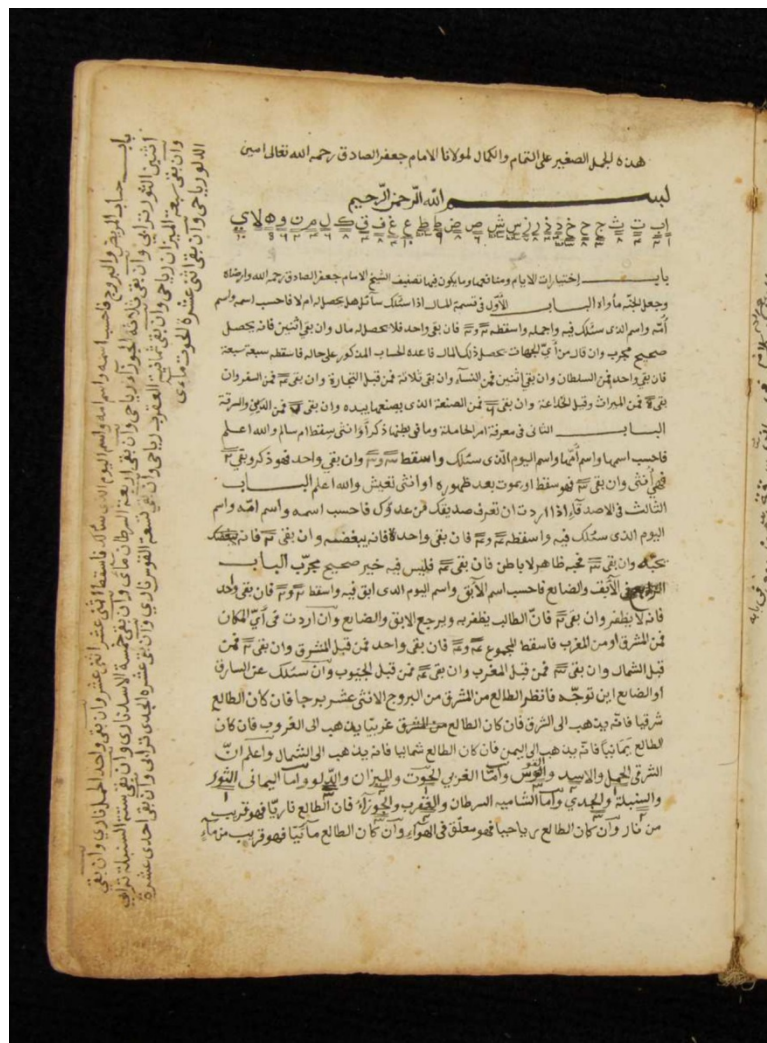 هذه الجمل الصغير على التمام والكمال لمولانا الامام جعفر الصادق رحمه الله تعالى امين
بسم الله الرحمن الرحيم
ا ب ت ث ج ح خ د ذ ر ز س ش ص ض ط ظ ع غ ف ق ك ل م ن و ه لا ي
باب إختيارات الايام ومنافعها وما يكون فيها تصنيف الشيخ الامام جعفر الصادق رحمه الله وارضاه
وجعل الجنّه مأواه الباب الأوّل في قسمة المال اذا سئلك سائل هل يحصل له ام لا فاحسب اسمه واسم
أمّه واسم الذى سئلك فيه واجمله واسقطه فان بقى واحد فلا يحصل له مال وان بقى اثنين فانه يحصل
صحيح مجرب وان قال من أيّ الجهات يحصل ذلك المال فاعده الحساب المذكور على حاله فاسقطه سبعة سبعة
فان بقى واحد فمن السلطان وان بقى إثنين فمن النسآء وان بقى ثلاثة فمن قبل التجارة وان بقى فمن السفر وان
بقى فمن الميراث وقبل وان بقى فمن الصنعة الذى يصنعها بيده وان بقى فمن والسرقة
الباب الثانى فى معرفة امر الحاملة وما فى بطنها ذكراً او انثى سقط ام سالم والله اعلم
فاحسب اسمها واسم أمّها واسم اليوم الذى سئلك واسقط وان بقى واحد فهو ذكر وبقى
فهي أنثى وان بقى فهو سقط او يموت بعد ظهوره او انثى تعيش والله اعلم الباب
الثالث في الاصدقاء اذا اردت ان تعرف صديقك من عدوّك فاحسب اسمه واسم امّه واسم
اليوم الذى سئلك فيه واسقطه فان بقى واحدة فانه يبغضه وان بقى فانه
يحبّه وان بقى يحبه ظاهر لا باطن فان بقى فليس فيه خير صحيح مجرّب الباب
الرابع فى الآبق والضايع فاحسب اسم الآبق واسم اليوم الذى ابق فيه واسقط فان بقى واحد
فانه لا يظفر وان بقى فانّ الطالب يظفر به ويرجع الابق والضايع وان اردت فى أيّ المكان
فمن المشرق او من المغرب فاسقط المجموع فان بقى واحد فمن قبل المشرق وان بقى فمن
قبل الشمال وان بقى فمن قبل المغرب وان بقى فمن قبل الجنوب وان سئلك عن السارق
او الضايع اين توجّه فانظر الطالع من المشرق من البروج الاثنى عشر برجا فان كان الطالع
شرقيا فانّه يذهب الى الشرق فان كان الطالع من المشرق غربيّا يذهب الى الغروب فان كان
الطالع يمانيّا فانّه يذهب الى اليمن فان كان الطالع شماليا فانه يذهب الى الشمال واعلم انّ
الشرقى الحمل والاسد والقوس وامّا الغربي الحوت والميزان والدلو واما اليمانى الثور
والسنبلة والجدي وامّا الشاميه السرطان والعقرب والجوزاء فان الطالع ناريّا فهو قريب
من نار وان كان الطالع رياحيا فهو معلّق فى الهواء وان كان الطالع مآئيّا فهو قريب من مآء
باب حساب المريض والبروج فاحسب اسمه واسم امه واسم اليوم الذى سألك فاسقط اثنى عشر اثنى عشر وان بقى واحد الحمل نارى وان بقى
اثنين الثور ترابى وان بقى ثلاثة الجوزاء رياحى وان بقى اربعة السرطان مائى وان بقى خمسة الاسد نارى وان بقى ستة السنبلة ترابى
وان بقى سبعة الميزان رياحى وان بقى ثمانية العقرب رياحى وان بقى تسعة القوس نارى وان بقى عشرة الجدى ترابى وان بقى احدى عشرة
الدلو رياحى وان بقى اثنى عشرة الحوت مآءى